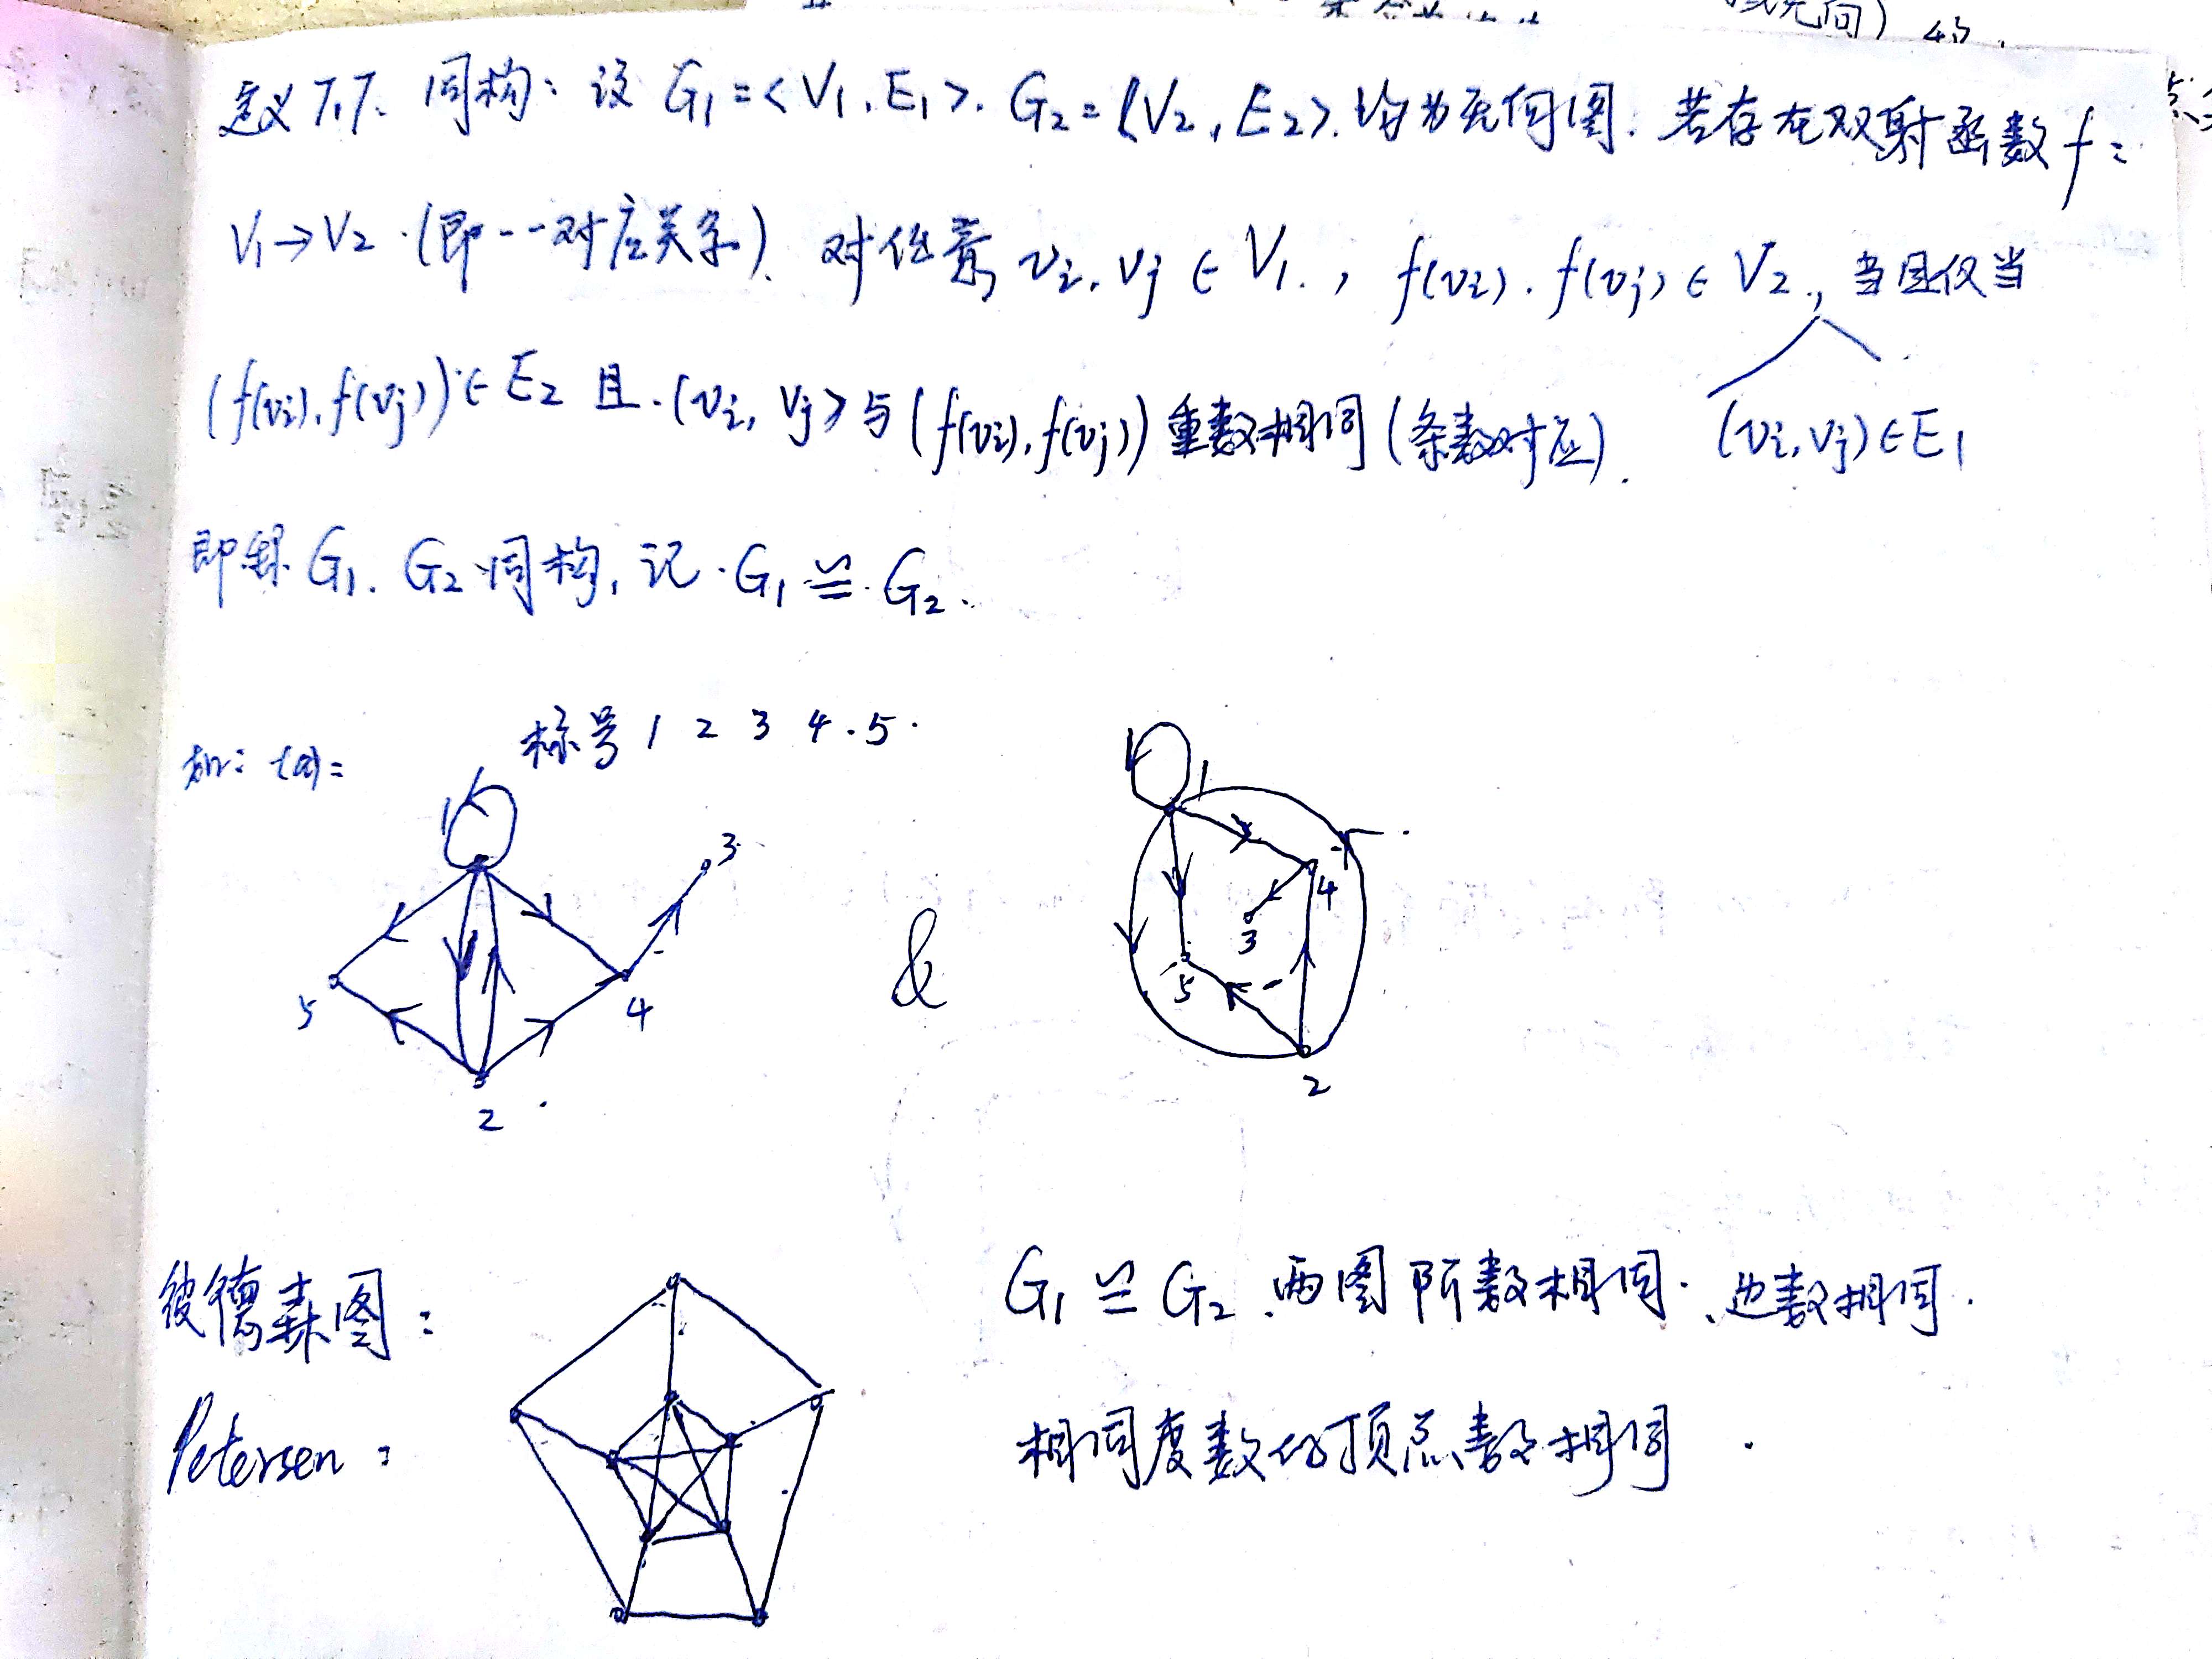 或无向) 的.
定义7.7. 同构: 设 G₁=<V₁,E₁>. G₂=<V₂,E₂>. 均为无向图. 若存在双射函数 f:
V₁→V₂.(即一一对应关系). 对任意 vᵢ,vⱼ∈V₁., f(vᵢ).f(vⱼ)∈V₂, 当且仅当
(vᵢ,vⱼ)∈E₁
(f(vᵢ),f(vⱼ))∈E₂ 且.(vᵢ,vⱼ>与(f(vᵢ),f(vⱼ))重数相同(条数对应).
即 G₁. G₂同构, 记.G₁≌G₂.
如: (a):
标号 1 2 3 4.5.
1
3
5
4
2
&
1
4
3
5
2
彼德森图:
Petersen:
G₁≌G₂.两图阶数相同.、边数相同.
相同度数的顶点数相同.